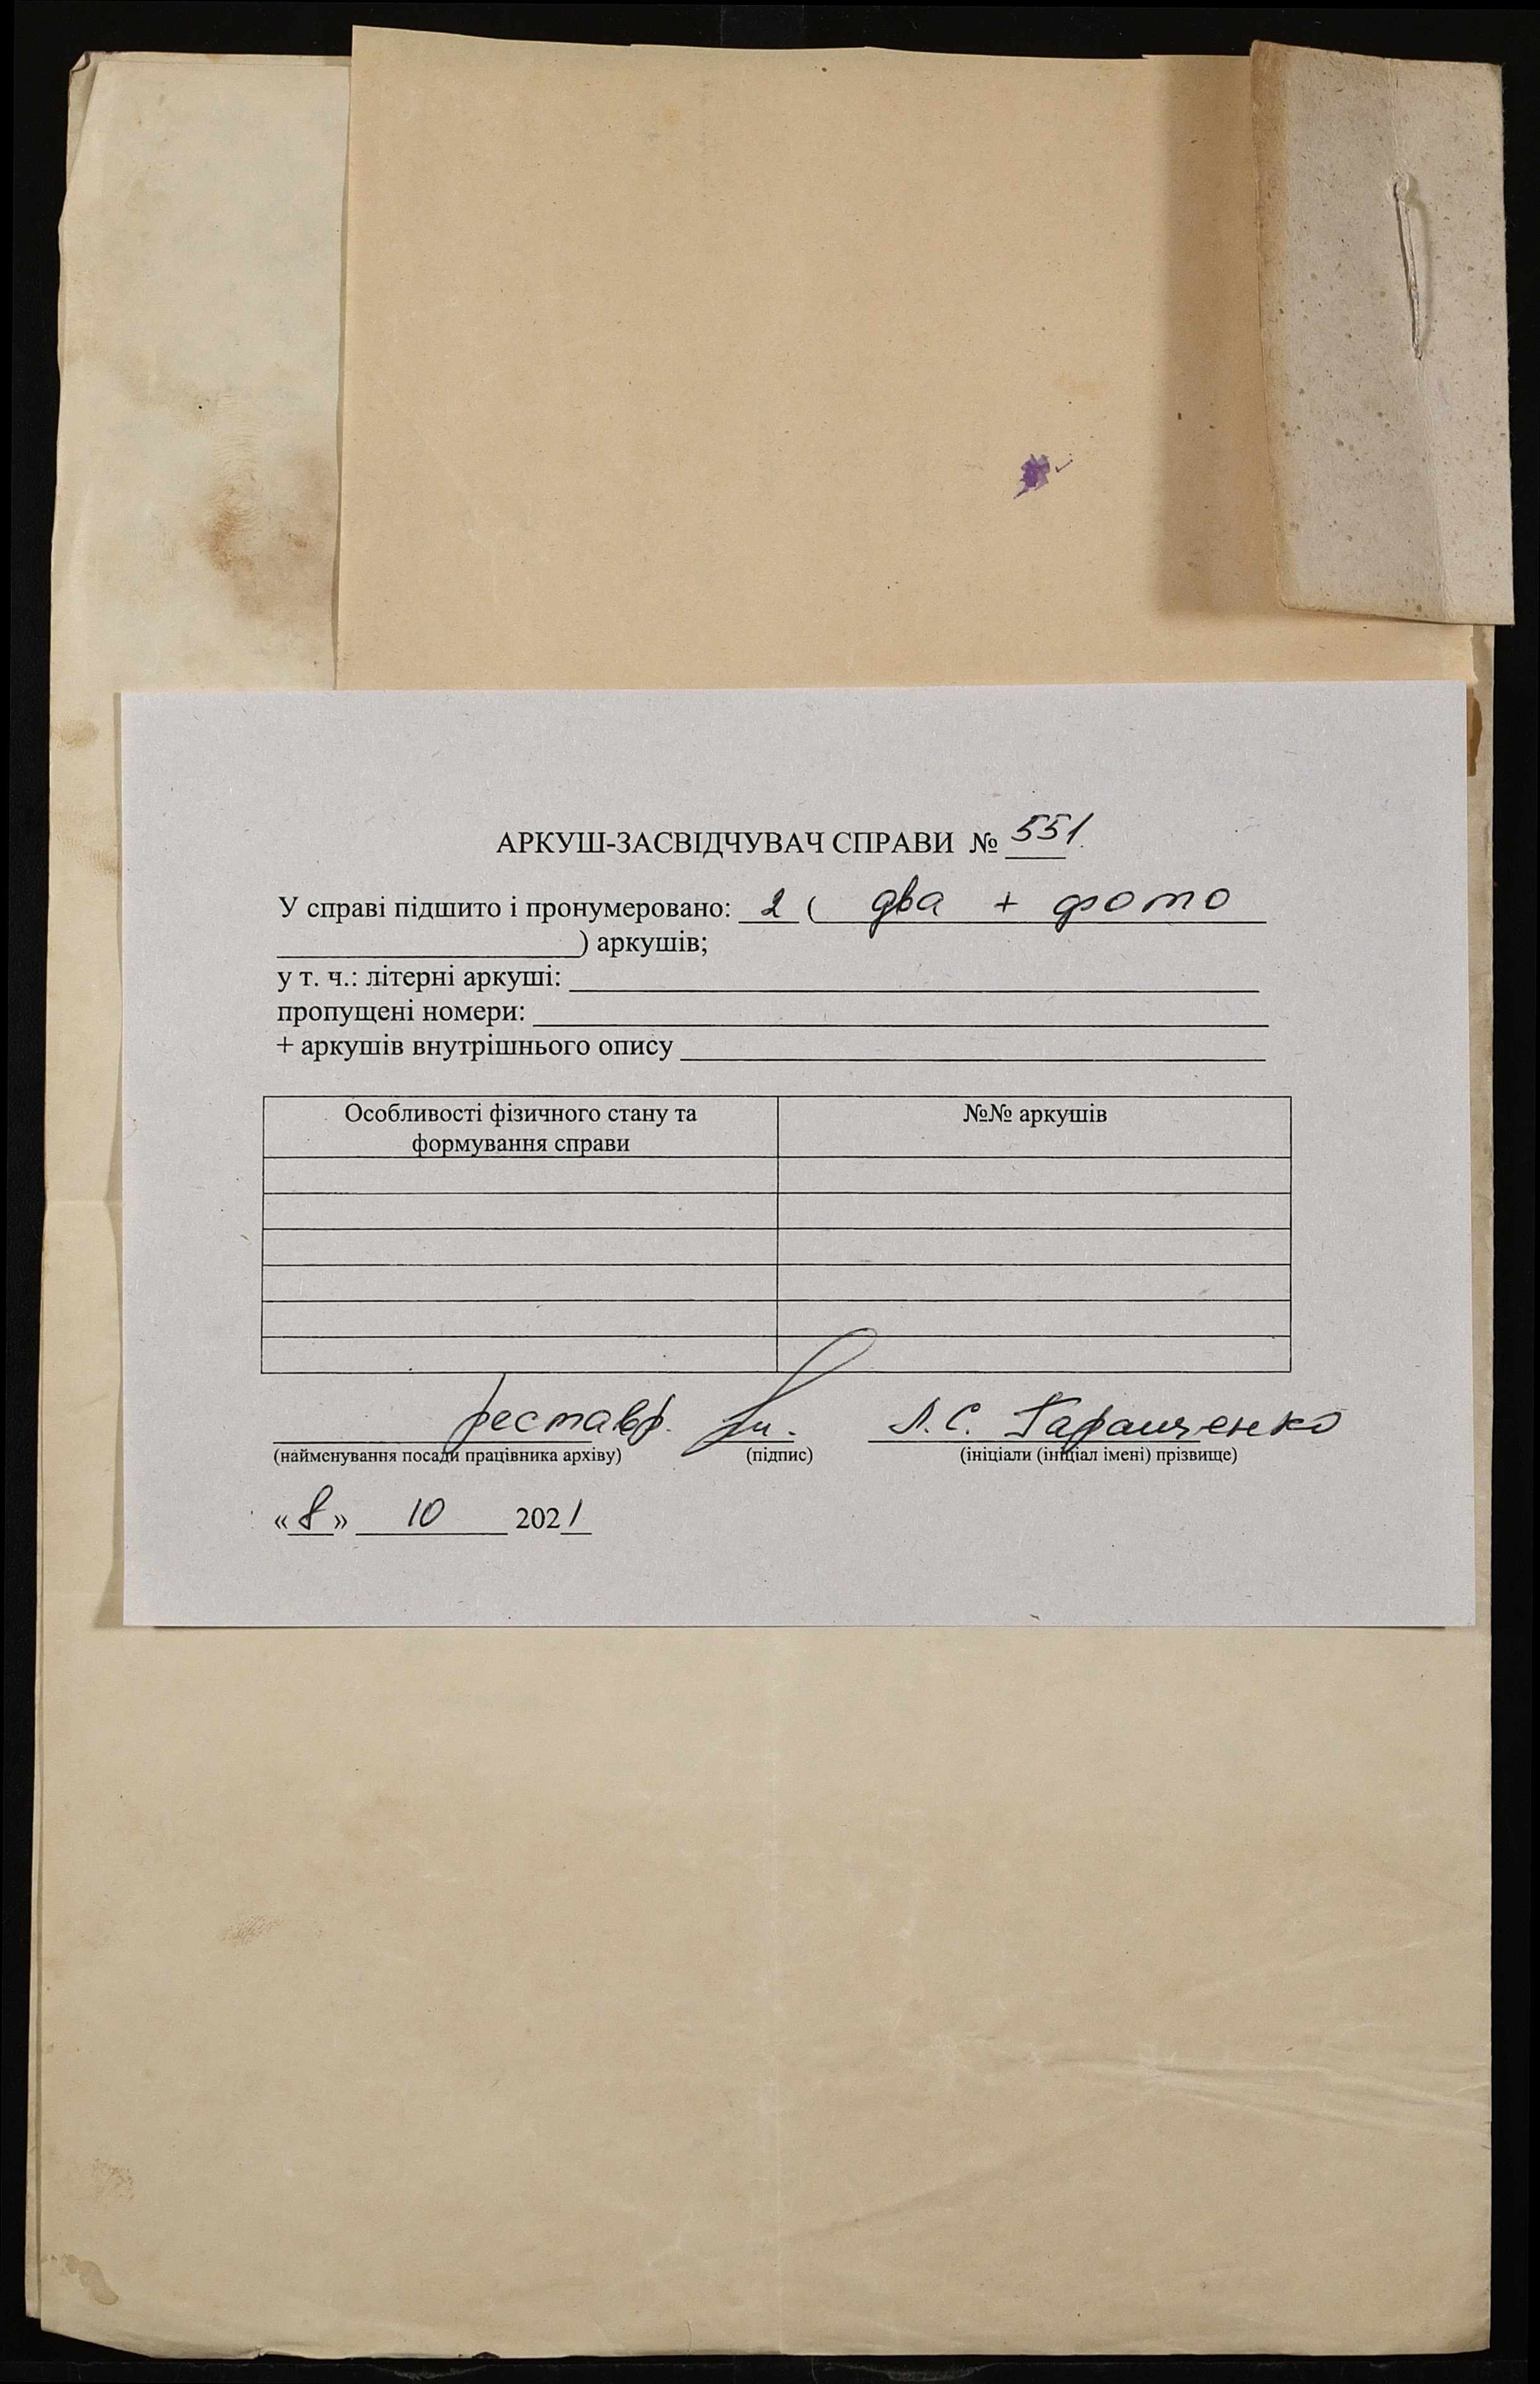 АРКУШ-ЗАСВІДЧУВАЧ СПРАВИ № 551.
У справі підшито і пронумеровано: 2 ( два + фото
) аркушів;
у т. ч.: літерні аркуші:
пропущені номери:
+ аркушів внутрішнього опису
Особливості фізичного стану та формування справи №№ аркушів
реставр. Л. С. Гаращенко
(найменування посади працівника архіву) (підпис) (ініціали (ініціал імені) прізвище)
«8» 10 2021